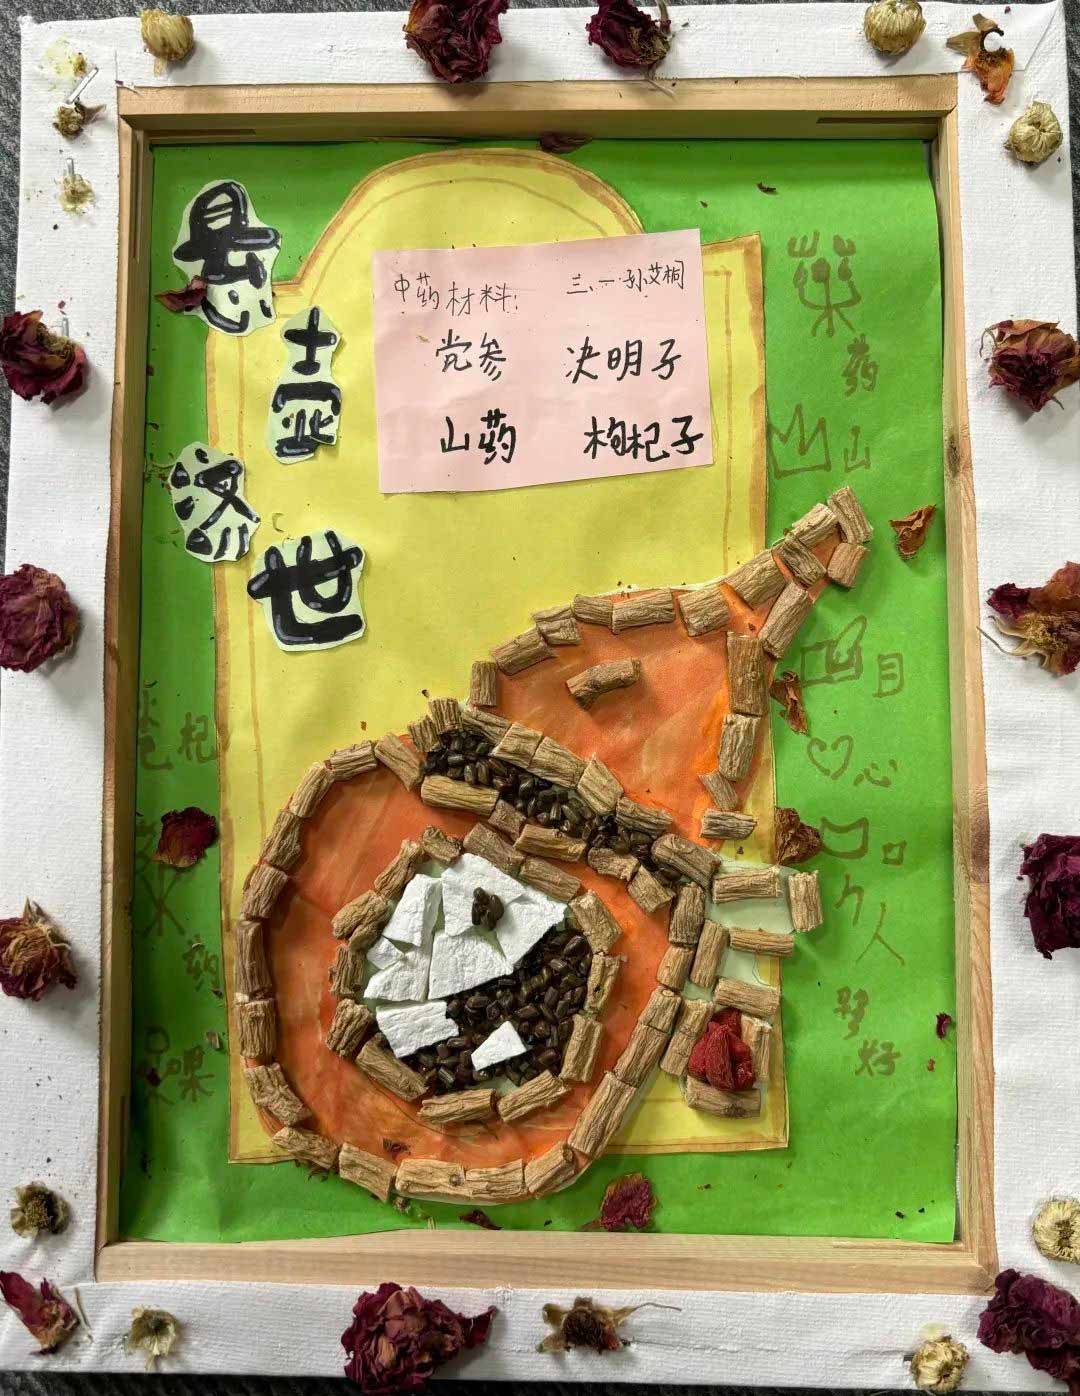 悬壶济世
中药材料: 三、一 孙艾桐
党参 决明子
山药 枸杞子
药
山
目
心
口
人
好
杞
药
果